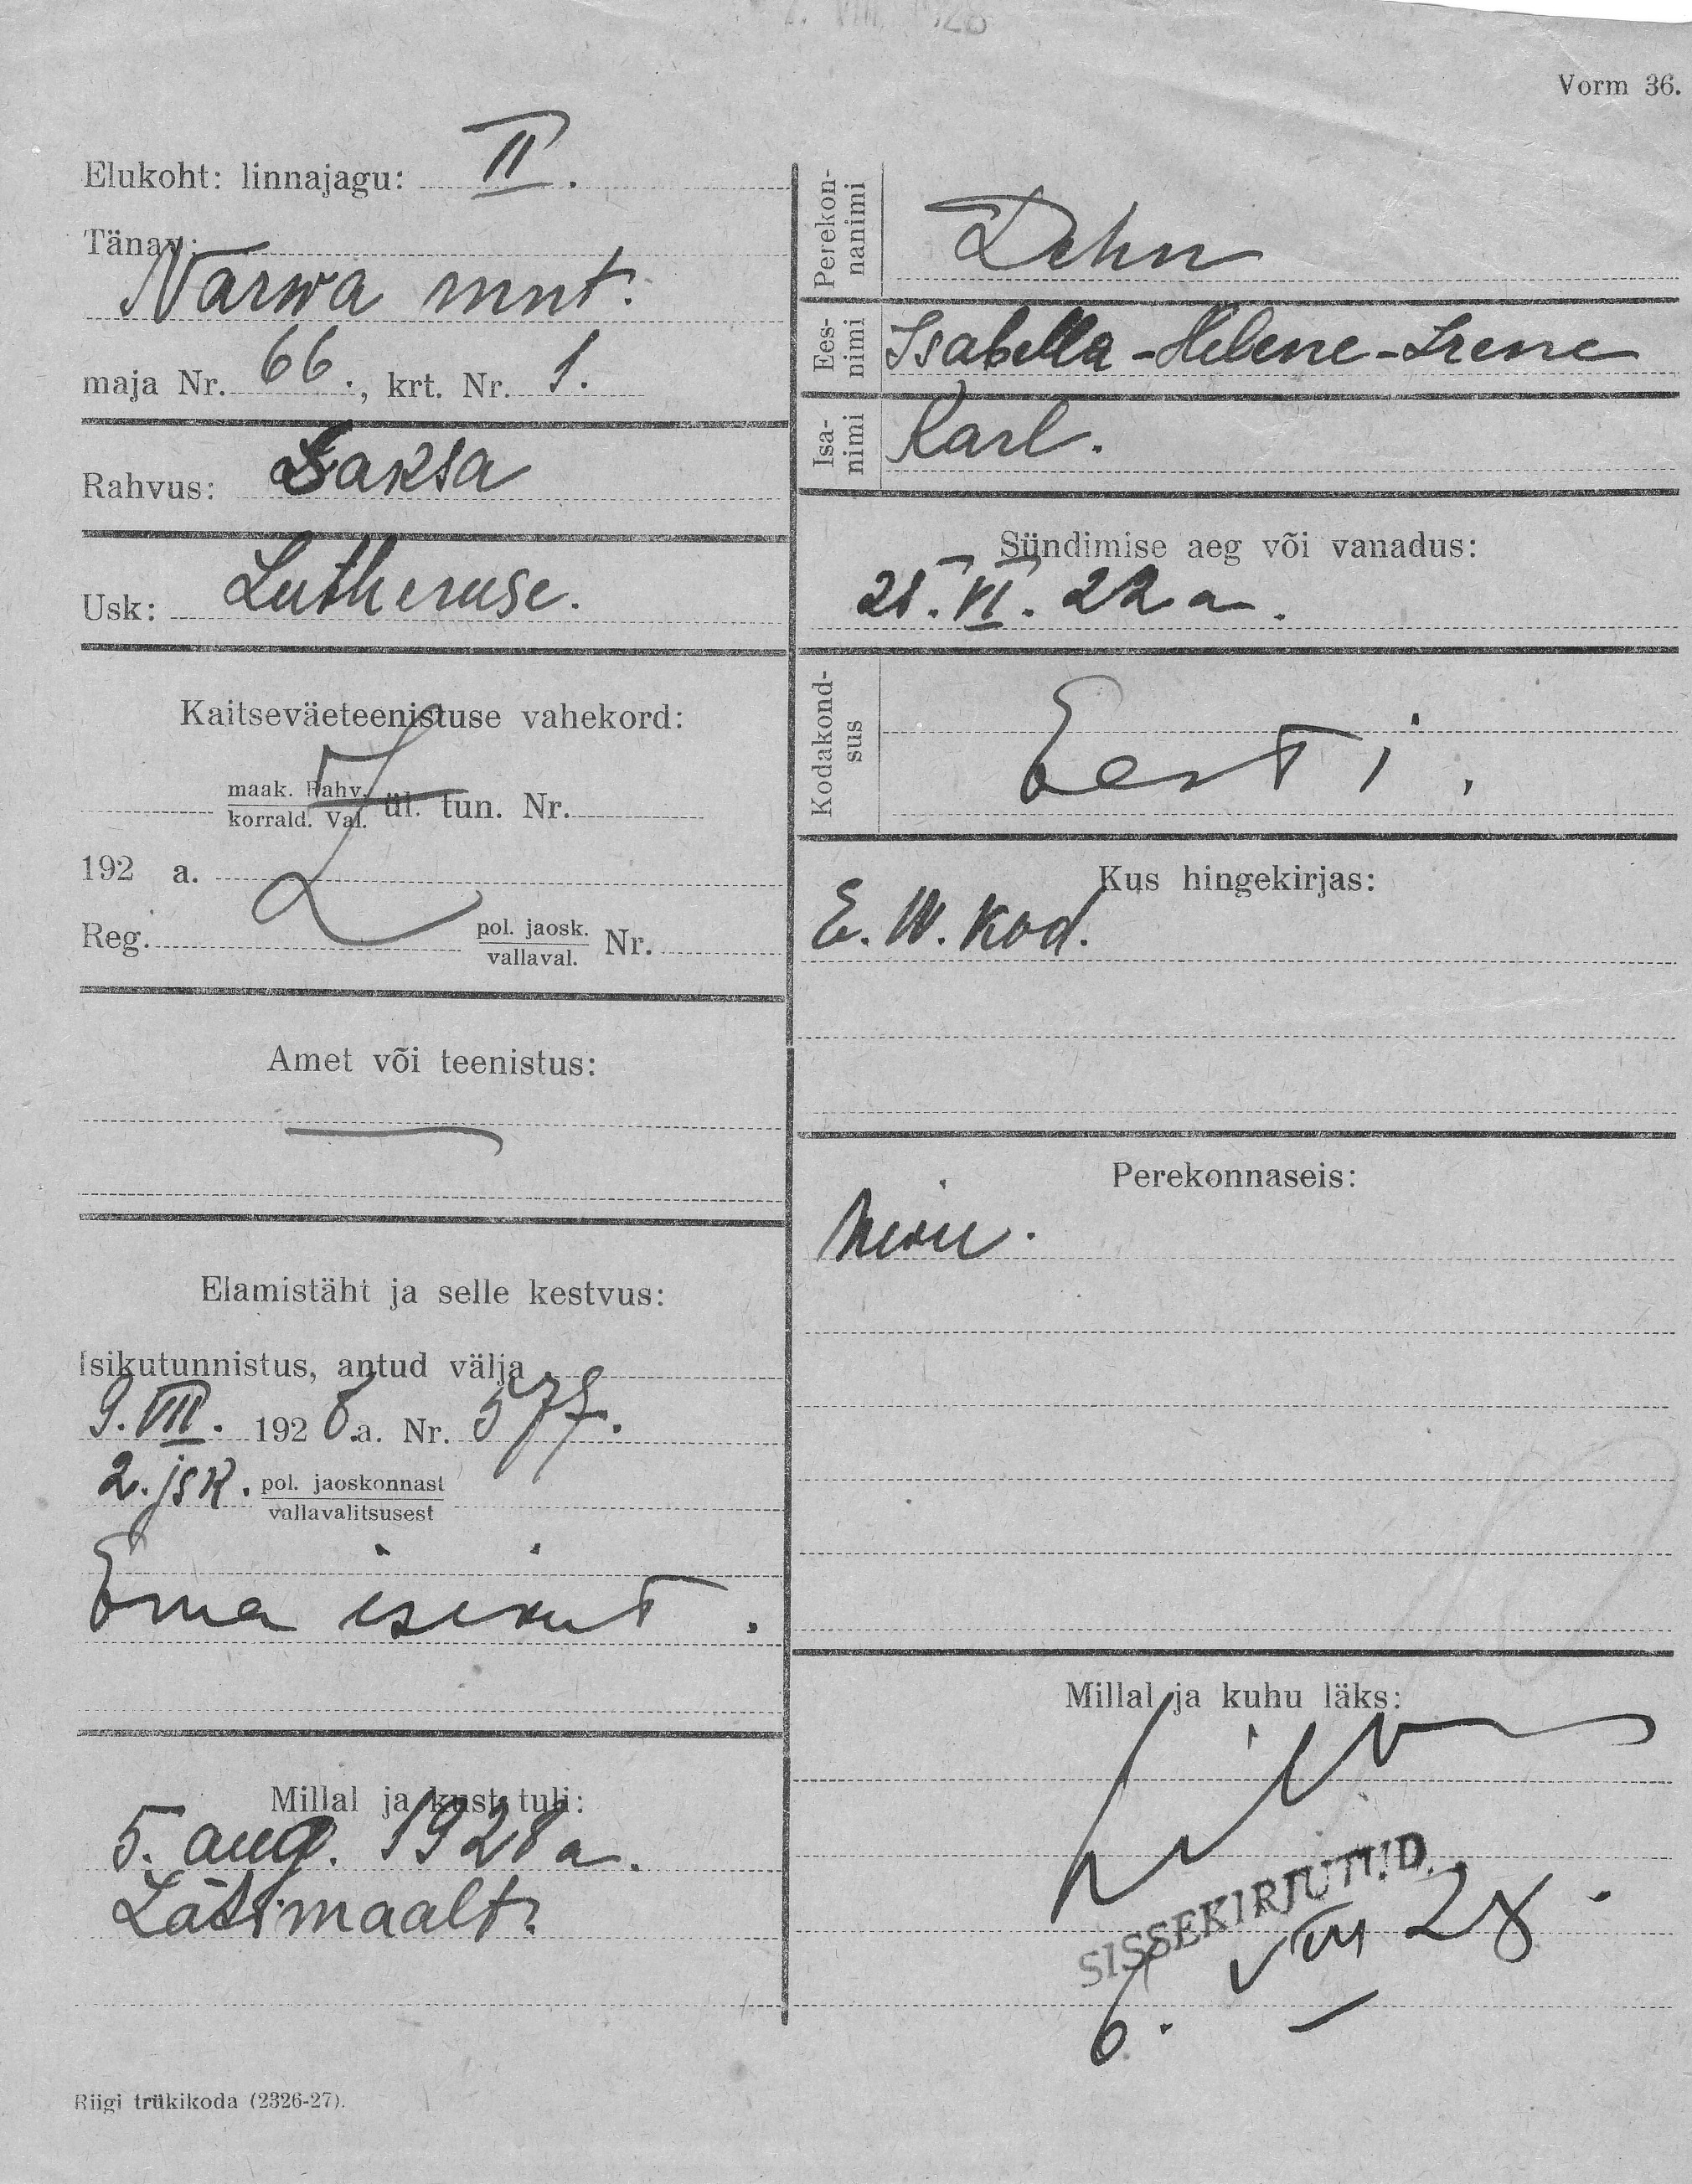 Vorm 36.
Elukoht: linnajagu: II.
Tänav:
Narwa mnt.
maja Nr. 66., krt. Nr. 1.
Rahvus: Saksa
Usk: Lutheruse.
Kaitseväeteenistuse vahekord:
maak. Rahv.
korrald. Val. ül. tun. Nr.
192 a.
Reg. pol. jaosk. Nr.
vallaval.
Amet või teenistus:
Elamistäht ja selle kestvus:
Isikutunnistus, antud välja
9. VII. 1928.a. Nr. 577.
2. jsk. pol. jaoskonnast
vallavalitsusest
Ema isikut.
Millal ja kust tuli:
5. aug. 1928 a.
Lätimaalt.
Riigi trükikoda (2326-27).
Perekon-
nanimi
Dehn
Ees-
nimi
Isabella-Helene-Irene
Isa-
nimi
Karl.
Sündimise aeg või vanadus:
21. VI. 22 a.
Kodakond-
sus
Eesti.
Kus hingekirjas:
E. W. Kod.
Perekonnaseis:
Millal ja kuhu läks:
SISSEKIRJUTUD.
6. VIII 28.